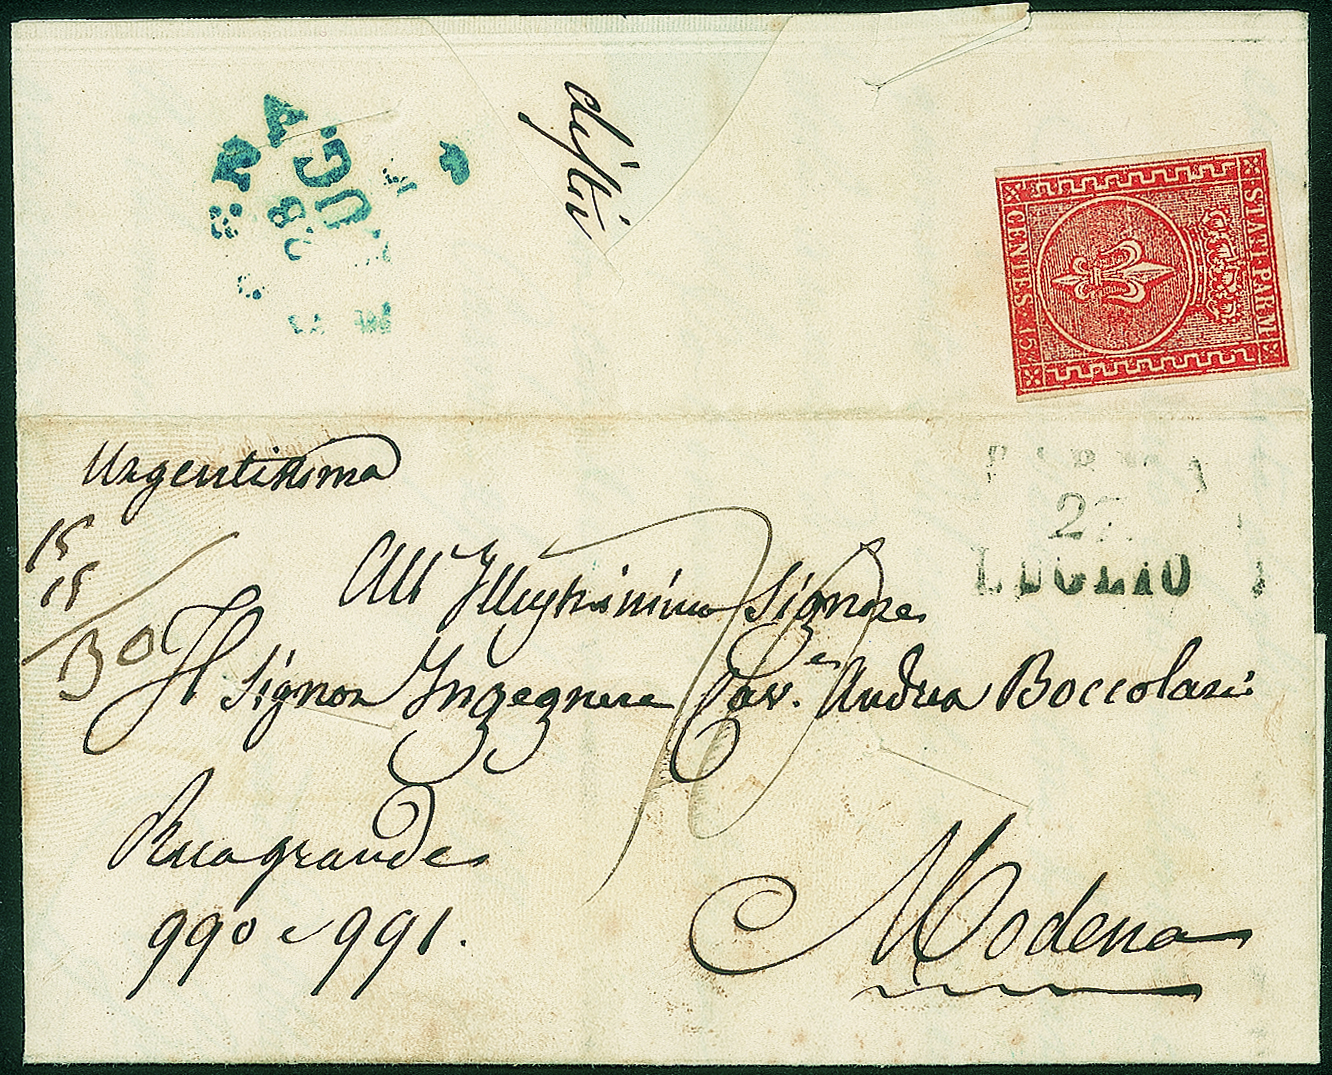 28
LUG.
STATI PARM.
CENTES. 15
PARMA
27
LUGLIO
Urgentissima
15
15
30
All' Illustrissimo Signore
Il Signor Ingegnere Cav.e Andrea Boccolari
Ruagrande
990 e 991.
Modena